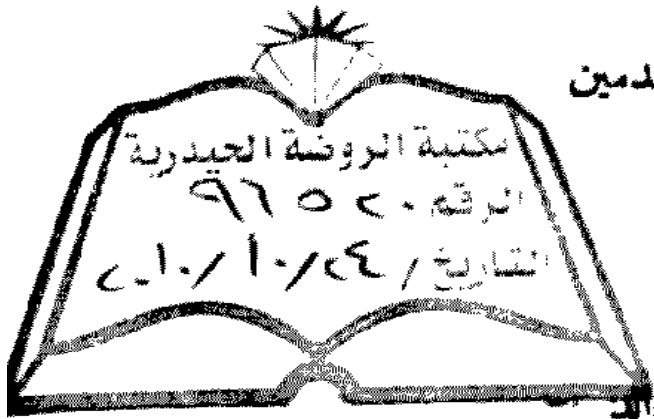 مكتبة الروضة الحيدرية
الرقم ٩٦٥٢٠
التاريخ / ٢٤/١٠/٢٠١٠